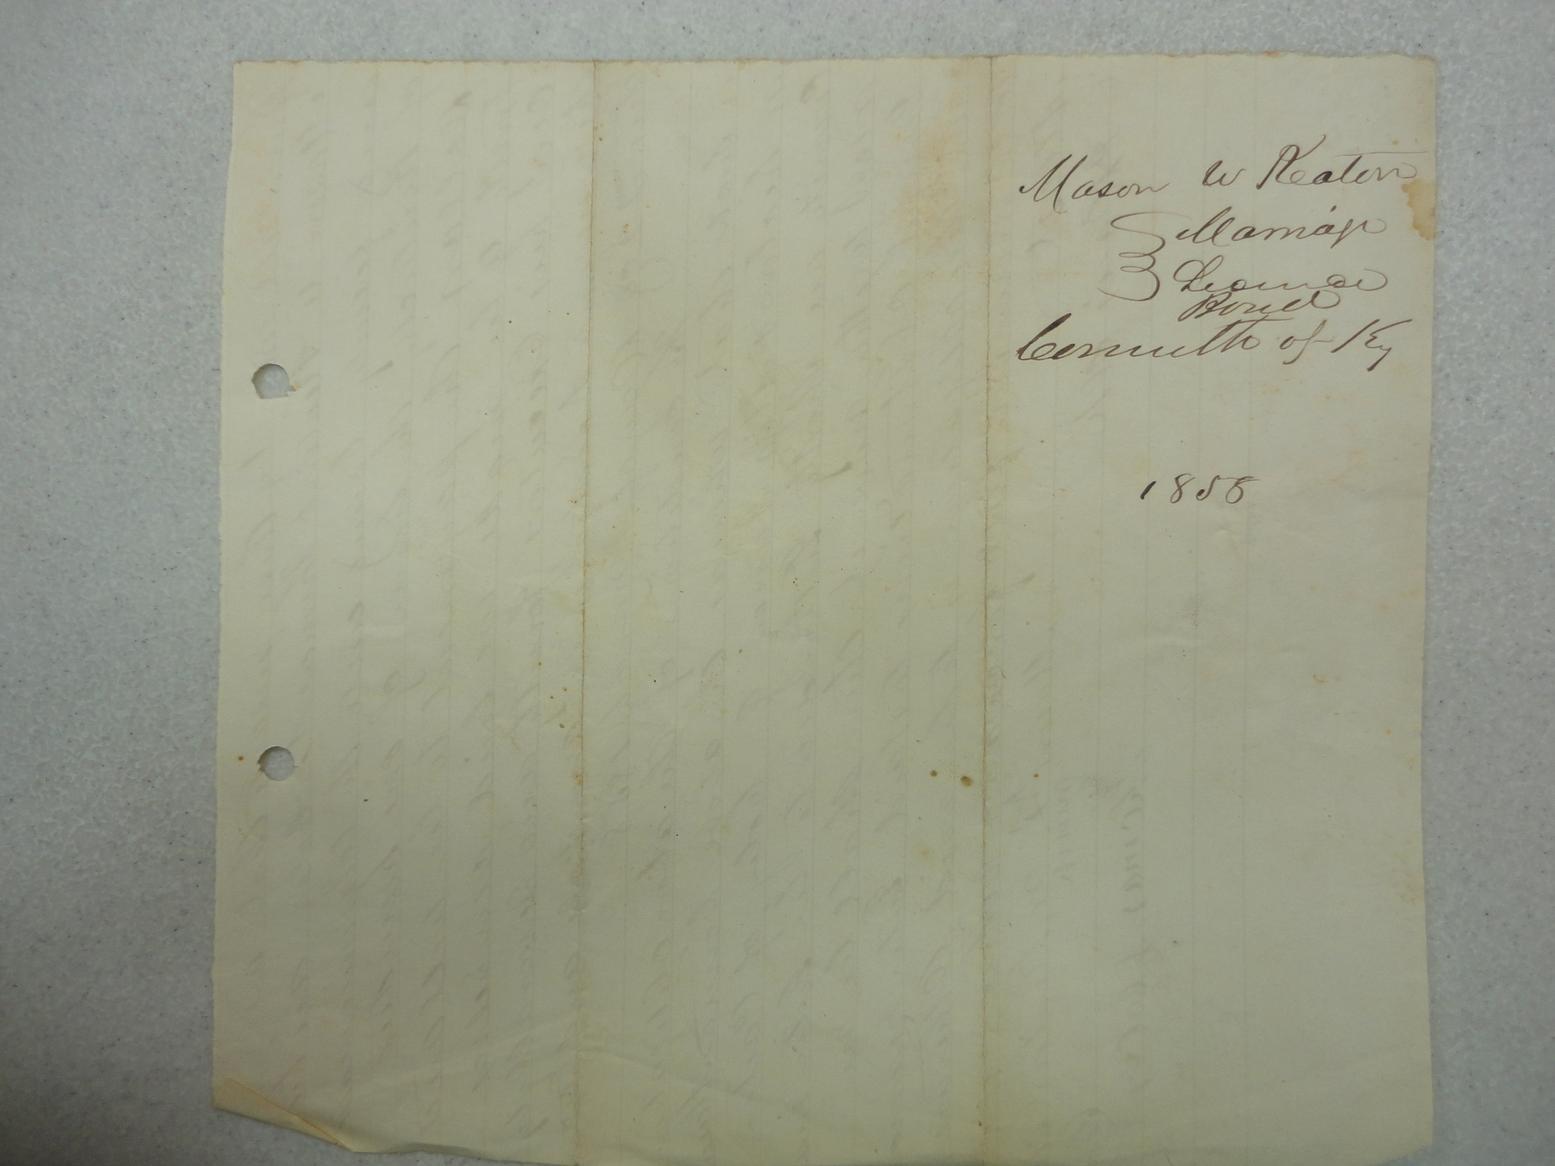 Mason W Keaton
Marriage
License
Bond
Comwlth of Ky
1858